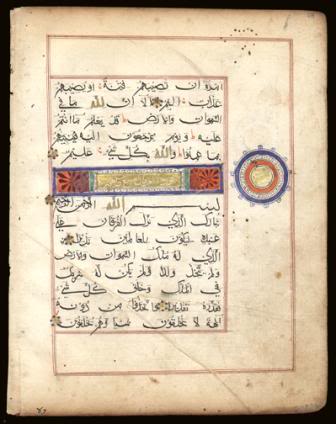 امره ان تصيبهم فتنة او يصيبهم
عذاب اليم الا ان لله ما في
السموات والارض قد يعلم ما انتم
عليه ويوم يرجعون اليه فينبئهم
بما عملوا والله بكل شيء عليم
بسم الله الرحمن الرحيم
تبارك الذي نزل الفرقان على
عبده ليكون للعالمين نذيرا
الذي له ملك السموات والارض
ولم يتخذ ولدا ولم يكن له شريك
في الملك وخلق كل شيء
فقدره تقديرا واتخذوا من دونه
الهة لا يخلقون شيئا وهم يخلقون